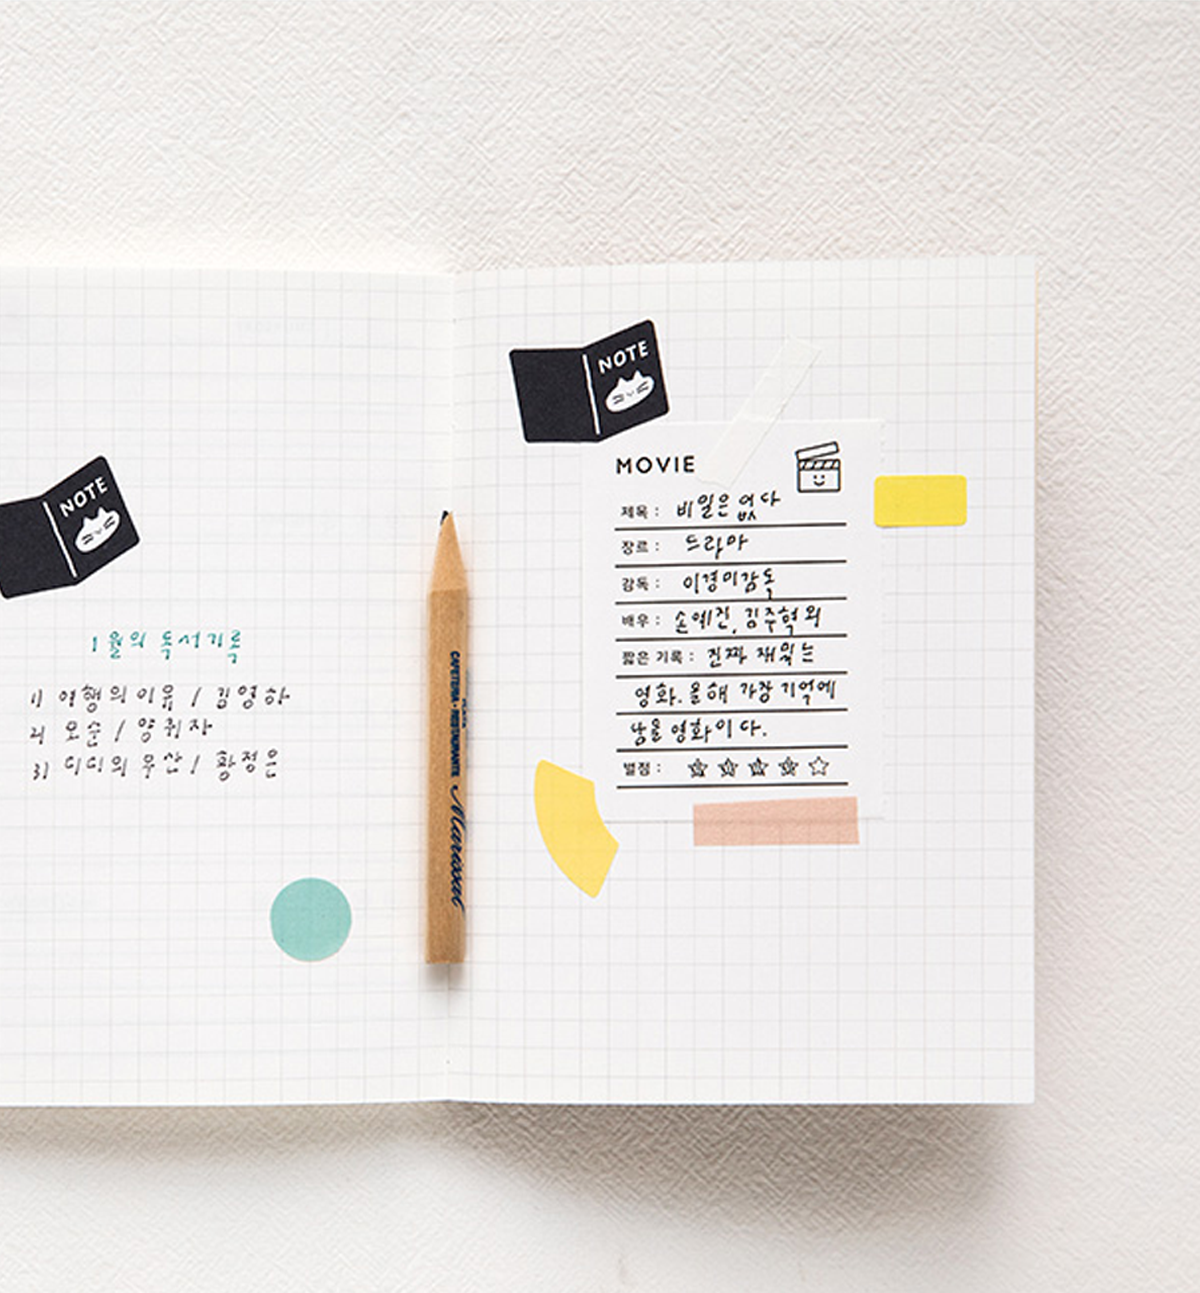 NOTE
1월의 독서기록
1) 여행의 이유 / 김영하
2) 모순 / 양귀자
3) 디디의 우산 / 황정은
CAFETERIA · RESTAURANTE
NOTE
MOVIE
제목 : 비밀은 없다
장르 : 드라마
감독 : 이경미감독
배우 : 손예진, 김주혁 외
짧은 기록 : 진짜 재밌는
영화. 올해 가장 기억에
남을 영화이다.
별점 :